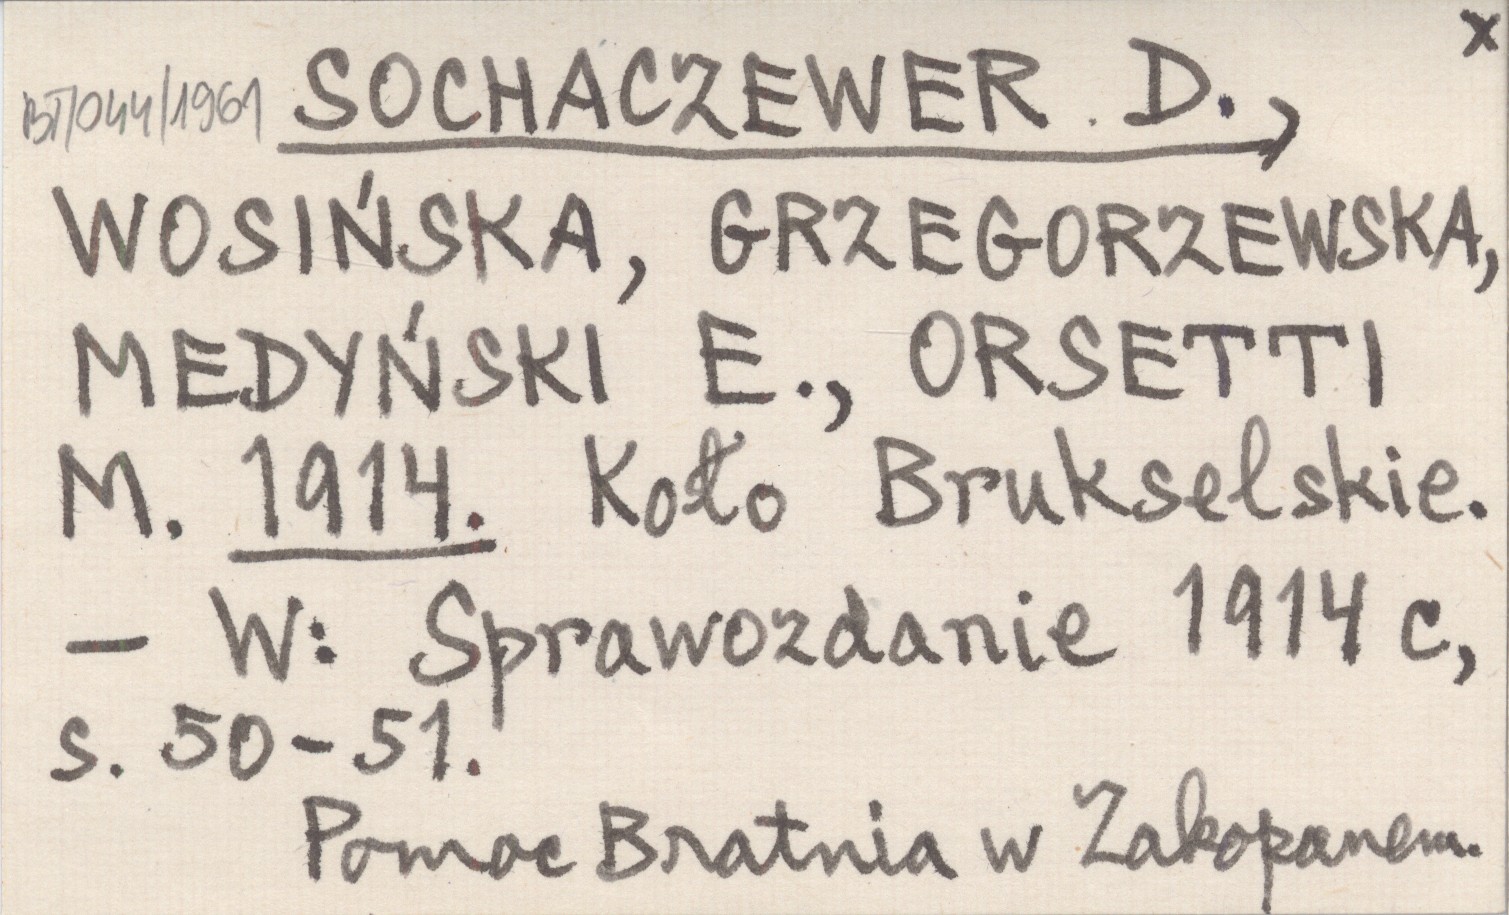 x
BT/044/1961 SOCHACZEWER D.,
WOSIŃSKA, GRZEGORZEWSKA,
MEDYŃSKI E., ORSETTI
M. 1914. Koło Brukselskie.
– W: Sprawozdanie 1914 c,
s. 50-51.
Pomoc Bratnia w Zakopanem.